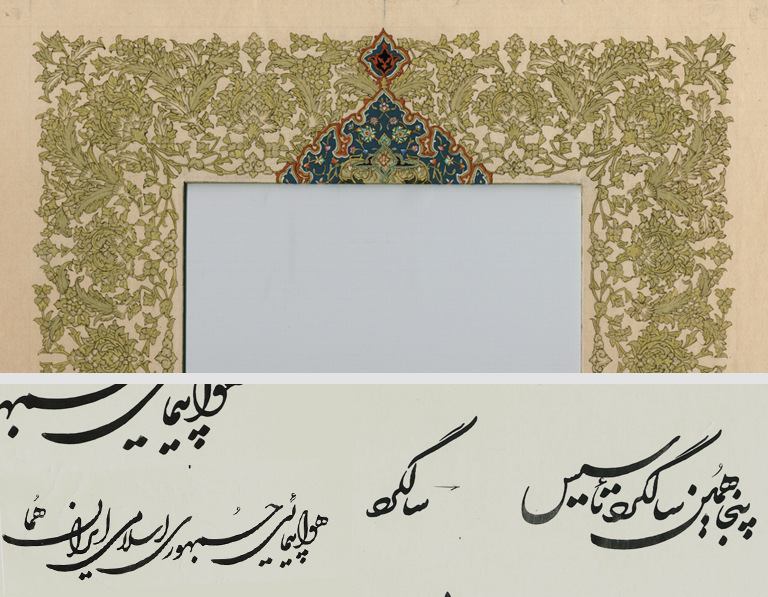 هواپیمایی جمهور
پنجاهمین سالگرد تأسیس
سالگرد
هواپیمائی جمهوری اسلامی ایران هما